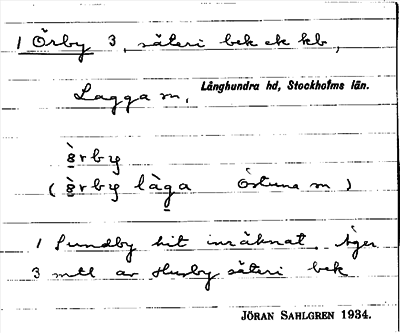 1 Örby 3, säteri bek ek kb,
Lagga sn, Långhundra hd, Stockholms län.
ö̀rby
(ö̀rby làga östuna sn)
1 Sundby hit inräknat. Äger
3 mtl av Husby säteri bek
JÖRAN SAHLGREN 1934.